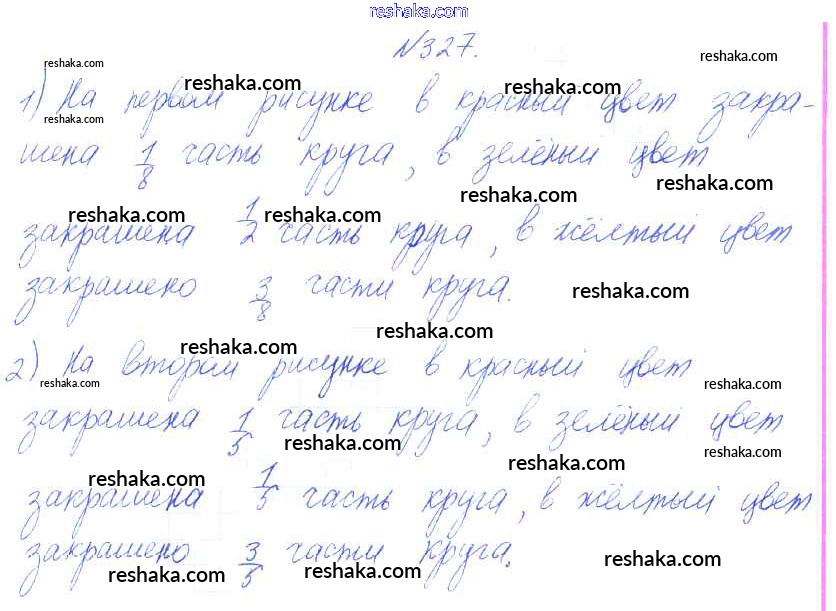 reshaka.com
№327.
reshaka.com reshaka.com reshaka.com reshaka.com
1) На первом рисунке в красный цвет закра-
reshaka.com
шена 1/8 часть круга, в зелёный цвет
reshaka.com reshaka.com
reshaka.com reshaka.com
закрашена 1/2 часть круга, в жёлтый цвет
закрашено 3/8 части круга.
reshaka.com
reshaka.com reshaka.com
2) На втором рисунке в красный цвет
reshaka.com reshaka.com
закрашена 1/5 часть круга, в зелёный цвет
reshaka.com reshaka.com
reshaka.com reshaka.com
закрашена 1/5 часть круга, в жёлтый цвет
закрашено 3/5 части круга.
reshaka.com reshaka.com reshaka.com